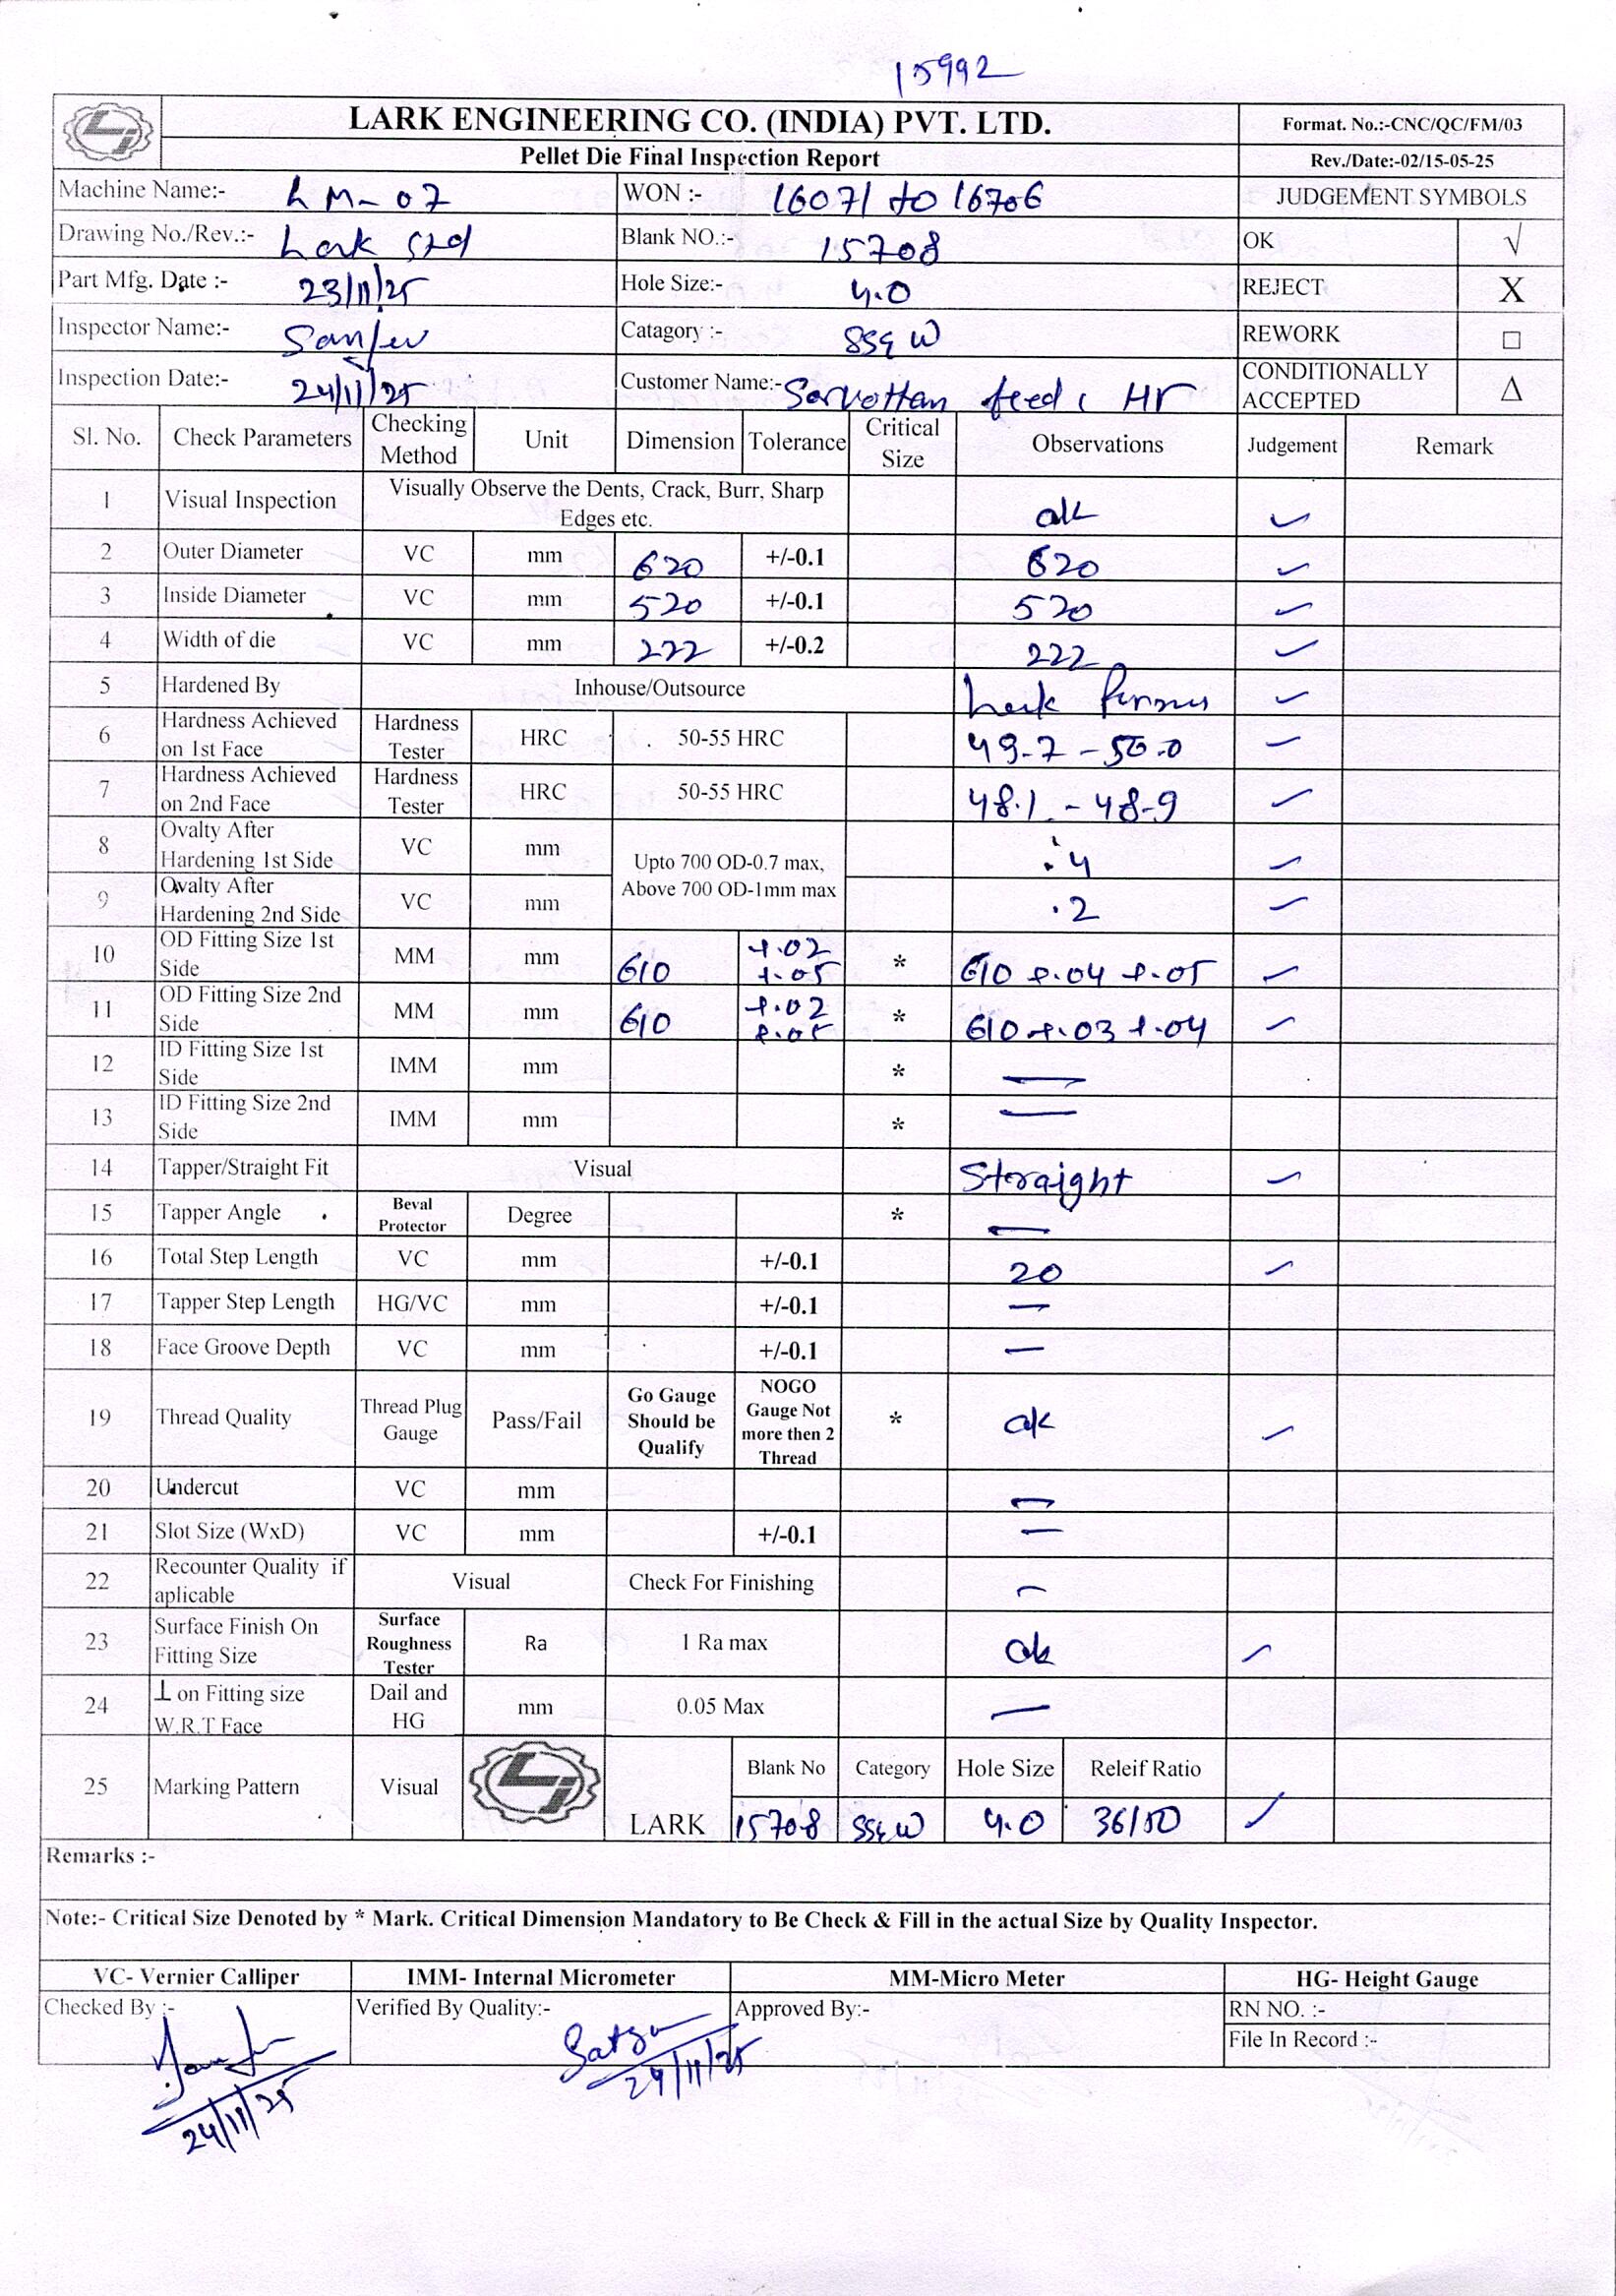 15992
LARK ENGINEERING CO. (INDIA) PVT. LTD.
Format. No.:-CNC/QC/FM/03
Pellet Die Final Inspection Report
Rev./Date:-02/15-05-25
Machine Name:- LM-07
WON :- 16071 to 16706
JUDGEMENT SYMBOLS
Drawing No./Rev.:- Lark Std
Blank NO.:- 15708
OK √
Part Mfg. Date :- 23/11/25
Hole Size:- 4.0
REJECT X
Inspector Name:- Sanjev
Catagory :- SS4W
REWORK □
Inspection Date:- 24/11/25
Customer Name:- Sarvottam feed, Hr
CONDITIONALLY ACCEPTED Δ
Sl. No. Check Parameters Checking Method Unit Dimension Tolerance Critical Size Observations Judgement Remark
1 Visual Inspection Visually Observe the Dents, Crack, Burr, Sharp Edges etc. ok ✓
2 Outer Diameter VC mm 620 +/-0.1 620 ✓
3 Inside Diameter VC mm 520 +/-0.1 520 ✓
4 Width of die VC mm 222 +/-0.2 222 ✓
5 Hardened By Inhouse/Outsource Lark ✓
6 Hardness Achieved on 1st Face Hardness Tester HRC 50-55 HRC 49.7 - 50.0 ✓
7 Hardness Achieved on 2nd Face Hardness Tester HRC 50-55 HRC 48.1 - 48.9 ✓
8 Ovalty After Hardening 1st Side VC mm Upto 700 OD-0.7 max, Above 700 OD-1mm max .4 ✓
9 Ovalty After Hardening 2nd Side VC mm .2 ✓
10 OD Fitting Size 1st Side MM mm 610 +.02 +.05 * 610 +.04 +.05 ✓
11 OD Fitting Size 2nd Side MM mm 610 +.02 +.05 * 610 +.03 +.04 ✓
12 ID Fitting Size 1st Side IMM mm * —
13 ID Fitting Size 2nd Side IMM mm * —
14 Tapper/Straight Fit Visual Straight ✓
15 Tapper Angle Beval Protector Degree * —
16 Total Step Length VC mm +/-0.1 20 ✓
17 Tapper Step Length HG/VC mm +/-0.1 —
18 Face Groove Depth VC mm +/-0.1 —
19 Thread Quality Thread Plug Gauge Pass/Fail Go Gauge Should be Qualify NOGO Gauge Not more then 2 Thread * ok ✓
20 Undercut VC mm —
21 Slot Size (WxD) VC mm +/-0.1 —
22 Recounter Quality if aplicable Visual Check For Finishing —
23 Surface Finish On Fitting Size Surface Roughness Tester Ra 1 Ra max ok ✓
24 ⊥ on Fitting size W.R.T Face Dail and HG mm 0.05 Max —
25 Marking Pattern Visual LARK Blank No Category Hole Size Releif Ratio
15708 SS4W 4.0 36/50 ✓
Remarks :-
Note:- Critical Size Denoted by * Mark. Critical Dimension Mandatory to Be Check & Fill in the actual Size by Quality Inspector.
VC- Vernier Calliper IMM- Internal Micrometer MM-Micro Meter HG- Height Gauge
Checked By :- Verified By Quality:- Approved By:- RN NO. :-
File In Record :-
24/11/25
24/11/25